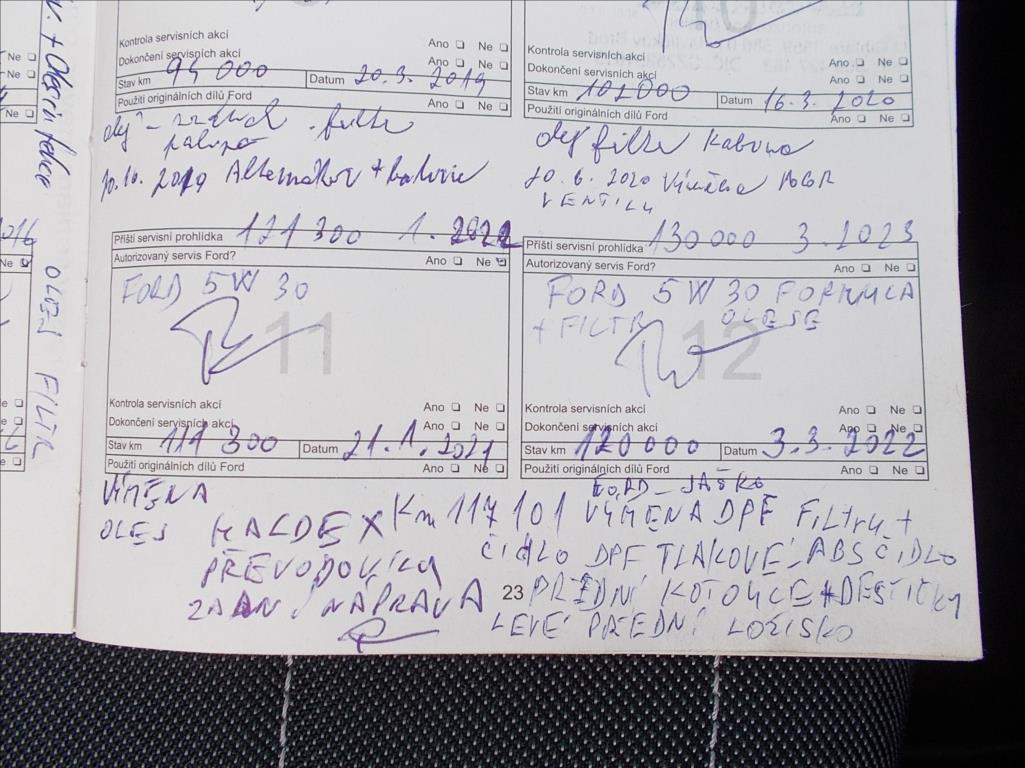 Kontrola servisních akcí
Dokončení servisních akcí Ano Ne
Ano Ne
Stav km 94 000 Datum 20.3. 2019
Použití originálních dílů Ford Ano Ne
olej filtr
10.10. 2019 Alternátor + baterie
Kontrola servisních akcí Ano Ne
Dokončení servisních akcí Ano Ne
Stav km 102000 Datum 16.3. 2020
Použití originálních dílů Ford Ano Ne
olej filtr Kabina
20.6. 2020 Výměna AGR
VENTILU
Příští servisní prohlídka 121 300 1. 2022
Autorizovaný servis Ford? Ano Ne
FORD 5W 30
11
Kontrola servisních akcí Ano Ne
Dokončení servisních akcí Ano Ne
Stav km 111 300 Datum 21.1.2021
Použití originálních dílů Ford Ano Ne
VÝMĚNA
OLEJ HALDEX
PŘEVODOVKY
ZADNÍ NÁPRAVA
Příští servisní prohlídka 130000 3.2023
Autorizovaný servis Ford? Ano Ne
FORD 5W 30 FORMULA
+ FILTR OLEJE
12
Kontrola servisních akcí Ano Ne
Dokončení servisních akcí Ano Ne
Stav km 120000 Datum 3.3.2022
Použití originálních dílů Ford Ano Ne
FORD - JAŠKO
Km 117 101 VÝMĚNA DPF FILTRU +
ČIDLO DPF TLAKOVÉ - ABS ČIDLO
23 PŘEDNÍ KOTOUČE + DESTIČKY
LEVÉ PŘEDNÍ LOŽISKO
OLEJ FILTR